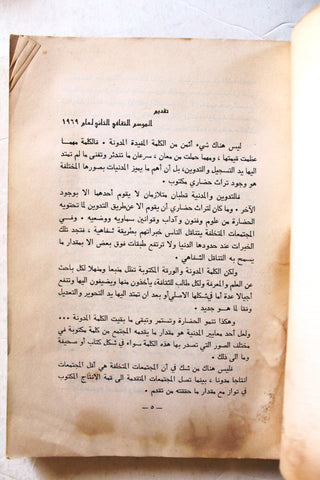 تقديم
الموسم الثقافي الثاني لعام ١٩٦٩
ليس هناك شيء أثمن من الكلمة المفيدة المدونة ٠ فالكلمة مهما
عظمت قيمتها ، ومهما حملت من معان ، سرعان ما تندثر وتفنى ما لم تمتد
اليها يد التسجيل والتدوين ، بل أن أهم ما يميز المدنيات بصورها المختلفة
هو وجود تراث حضاري مكتوب ٠
فالتدوين والمدنية قطبان متلازمان لا يقوم أحدهما الا بوجود
الآخر ٠ وما كان لتراث حضاري أن يقوم الا عن طريق التدوين لما تمتد
الحضارة من علوم وفنون وآداب وقوانين سماوية ووضعية ٠ وفي
المجتمعات المتخلفة يتناقل الناس خبراتهم بطريقة شفاهية ، فتجد تلك
الخبرات عند حدودها الدنيا ولا ترتفع طبقات فوق بعض الا بمقدار ما
يسمح به التناقل الشفاهي ٠
ولكن الكلمة المدونة والورقة المكتوبة تظل منبعا ومنهلا لكل باحث
عن العلم والمعرفة ولكل طالب للثقافة، يأخذون منها ويضيفون اليها وتتفع
أجيالا عدة أما في شكلها الاصلي أو بعد ان تمتد اليها يد التحوير والتعديل
وفقا لما هو جديد ٠
وهكذا تنمو الحضارة وتستمر وتبقى ما بقيت الكلمة المدونة ٠٠٠
ولعل أحد معايير المدنية هو مقدار ما يقدمه المجتمع من كلمة مدونة في
مختلف الصور التي تصدر بها هذه الكلمة سواء في شكل كتاب أو صحيفة
وما الى ذلك ٠
فليس هناك من شك في أن المجتمعات المتخلفة هي أقل المجتمعات
انتاجا مدونا ، بينما تصل المجتمعات المتقدمة الى قمة الانتاج المكتوب
في تواز مع مقدار ما حققته من تقدم ٠
— ٥ —